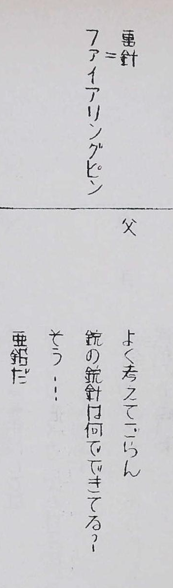 雷針
=
ファイアリングピン
父
よく考えてごらん
銃の銃針は何でできてる?
そう…
亜鉛だ